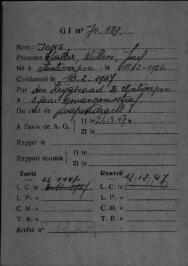 GI n° 70.189.
Nom: JONG
Prénoms Walter, Willem, Jozef
Né à Antwerpen, le 1926
Condamné le 18.2.1947
par den Krijgsraad te Antwerpen
à 2 jaar gevangenisstraf
Du chef de wapendracht
A l'avis de A. G. 1) le 26.3.47
2) le
Rappel le
Rapport soumis 1) le
2) le
Sorti Rentré
L. C. le L. C. le 12.12.47
L. P. » L. P. »
C. M. » C. M. »
T. R. » T. R. »
Arrêté n°